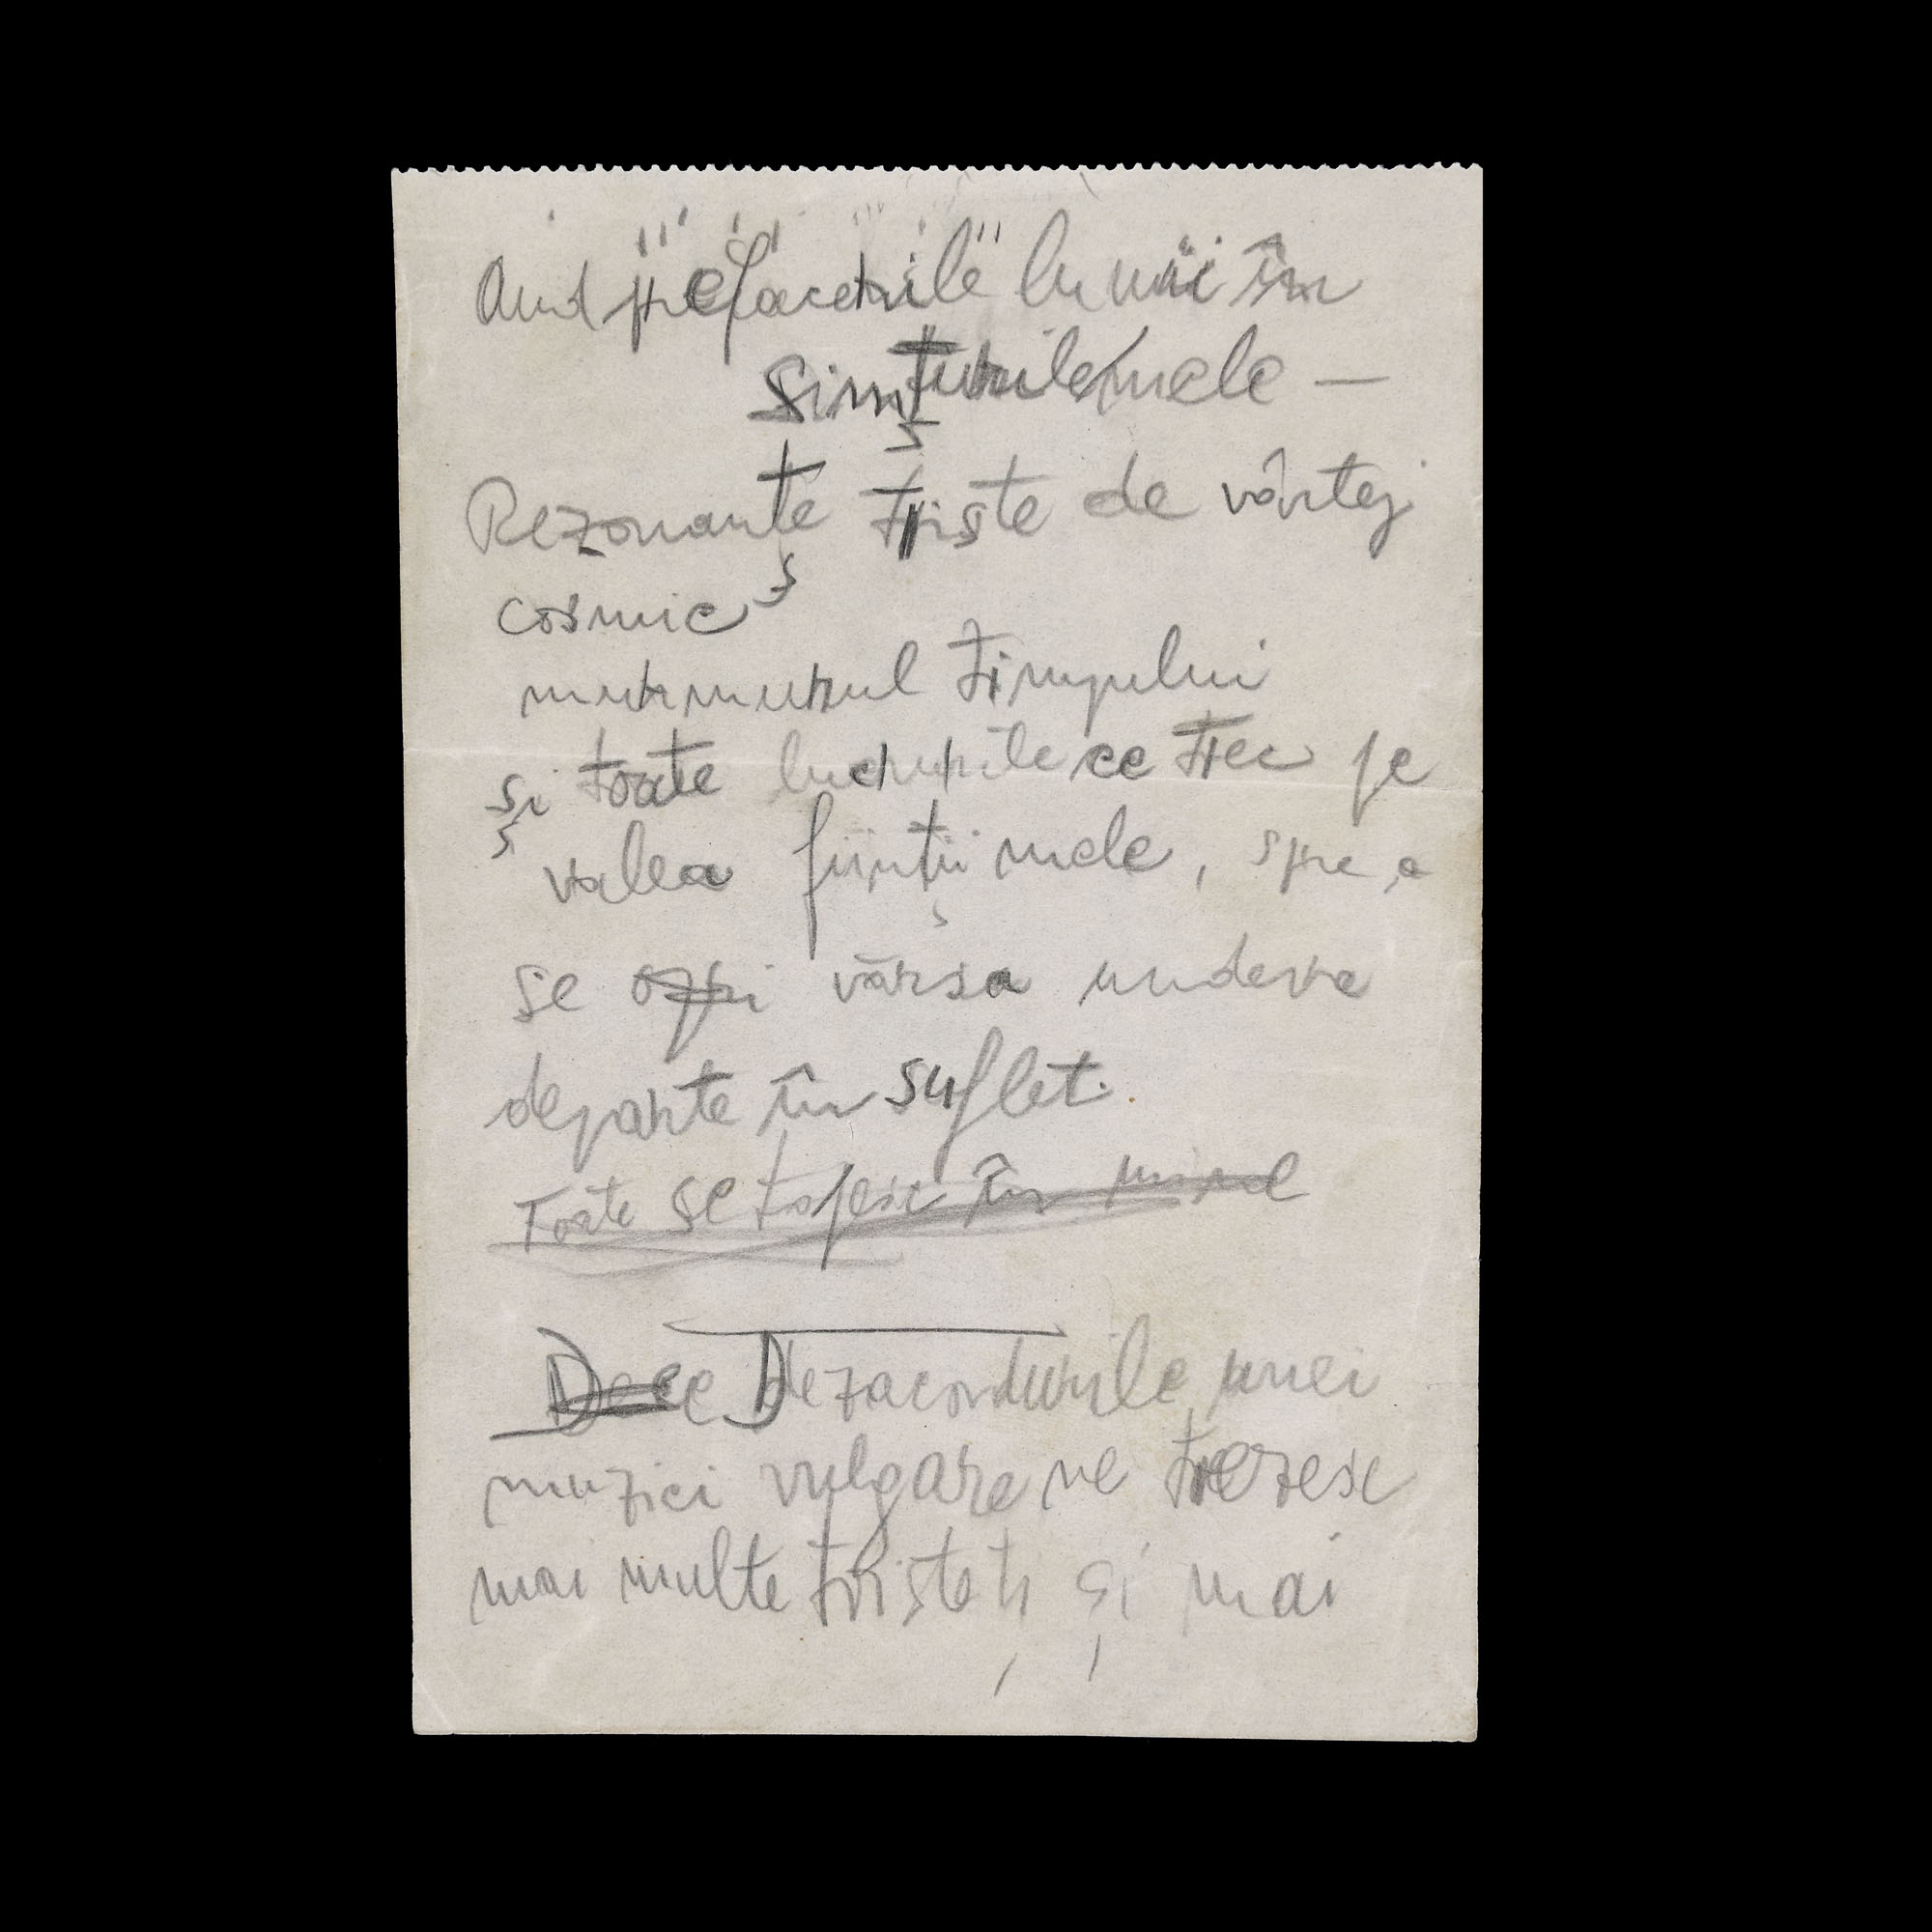 Aud "prefacerile" lumii în
simțurile mele —
Rezonanțe triste de vârtej
cosmic
murmurul timpului
și toate lucrurile ce trec pe
valea ființii mele, spre a
se opri vărsa undeva
departe în suflet.
Toate se topesc în mine
Dece Dezacordurile unei
muzici vulgare ne trezesc
mai multe tristeți și mai